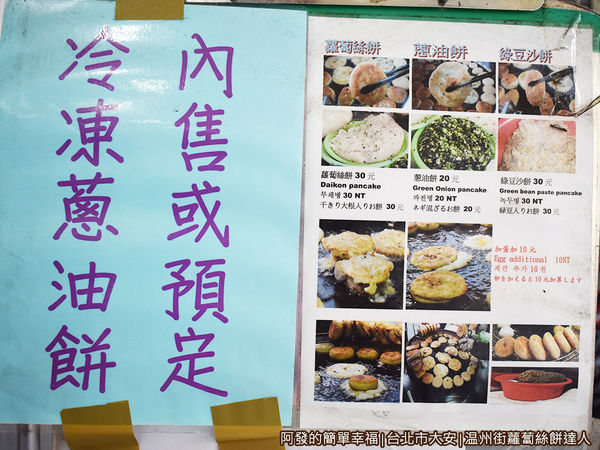 內售或預定
冷凍蔥油餅
蘿蔔絲餅
蔥油餅
綠豆沙餅
蘿蔔絲餅 30 元
Daikon pancake
무채병 30 NT
千きり大根入りお餅 30 元
蔥油餅 20 元
Green Onion pancake
파전병 20 NT
ネギ混ざるお餅 20 元
綠豆沙餅 30 元
Green bean paste pancake
녹두병 30 NT
緑豆入りお餅 30 元
加蛋加 10 元
Egg additional 10NT
계란 추가 10 원
卵を加えると 10 元加算します
阿發的簡單幸福|台北市大安|溫州街蘿蔔絲餅達人